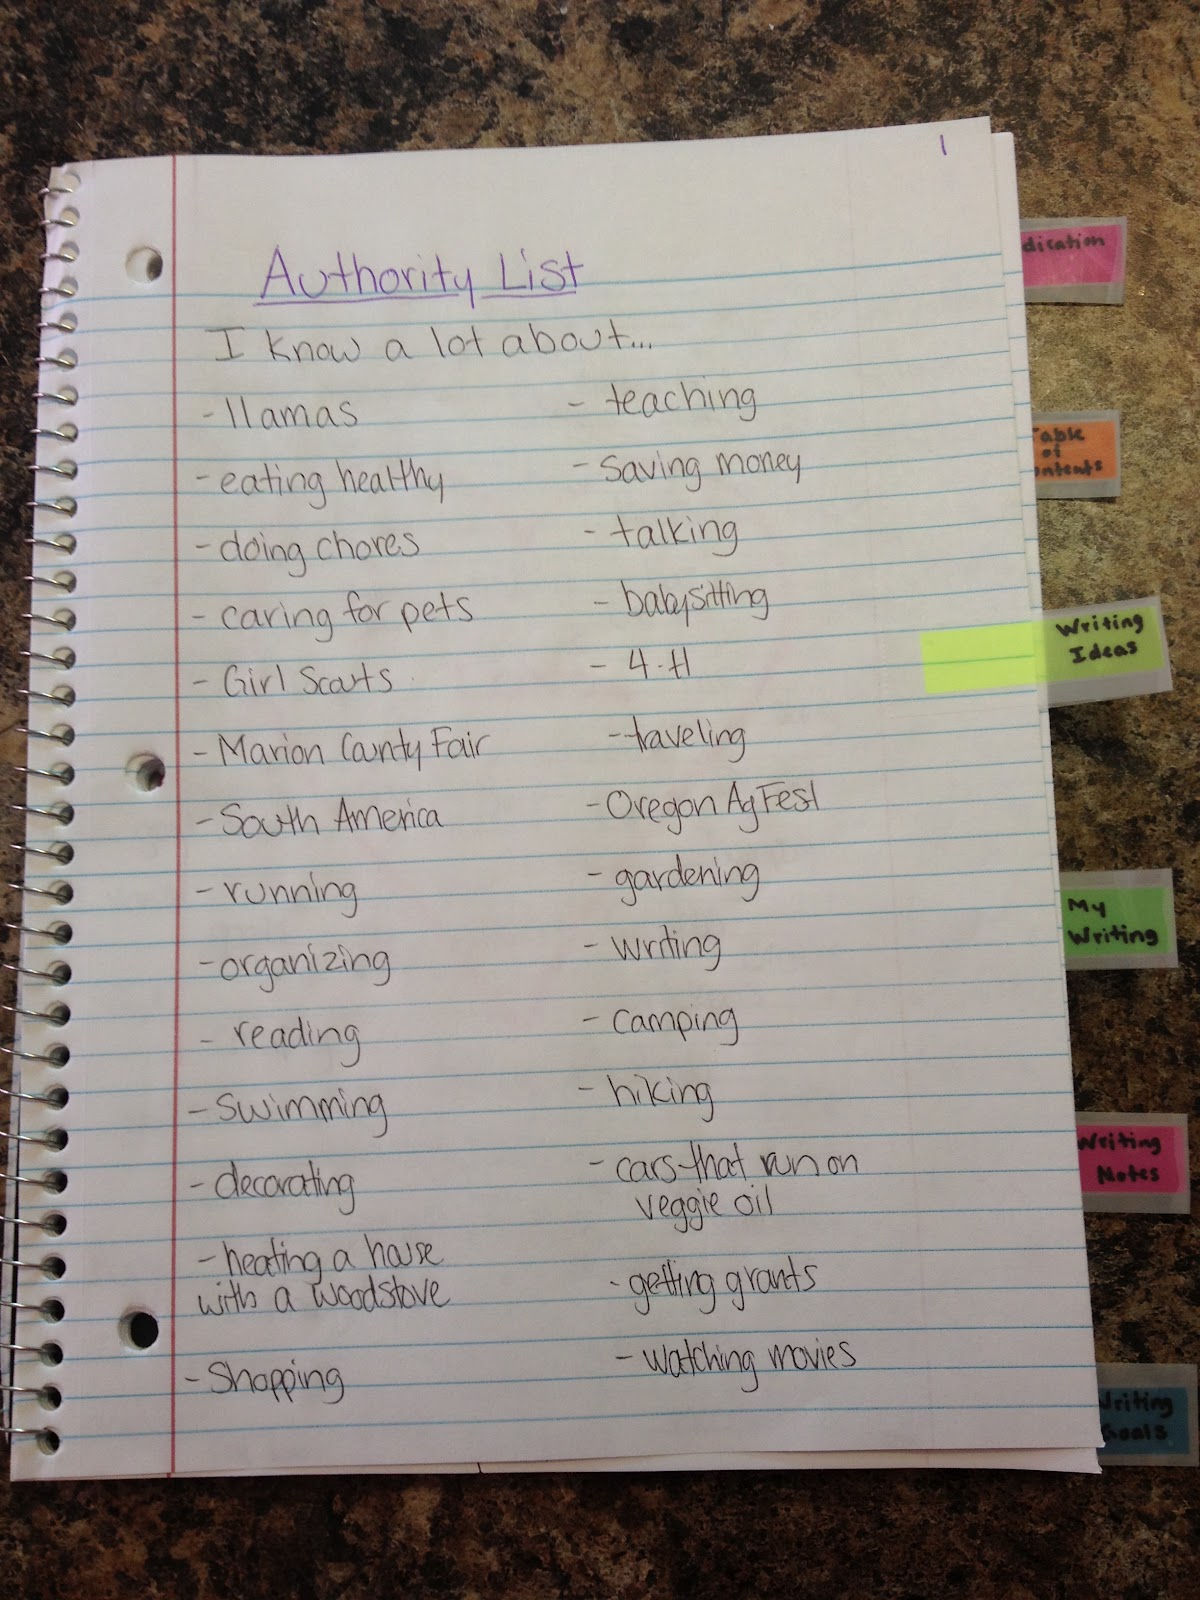 1
Authority List
I know a lot about...
- llamas
- eating healthy
- doing chores
- caring for pets
- Girl Scouts
- Marion County Fair
- South America
- running
- organizing
- reading
- swimming
- decorating
- heating a house
with a woodstove
- Shopping
- teaching
- saving money
- talking
- babysitting
- 4-H
- traveling
- Oregon AgFest
- gardening
- writing
- camping
- hiking
- cars that run on
veggie oil
- getting grants
- watching movies
dication
Table
of
ontents
Writing
Ideas
My
Writing
Writing
Notes
Writing
Goals